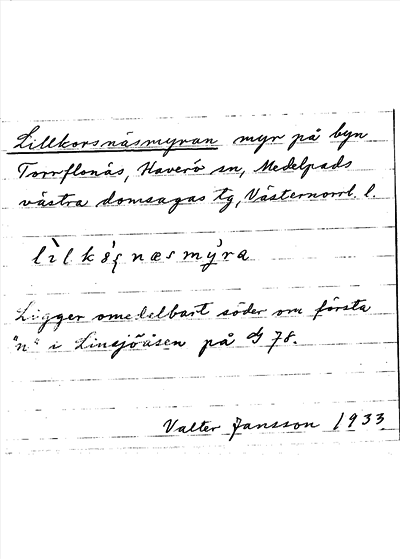 Lillkorsnäsmyran myr på byn
Torrflonäs, Haverö sn, Medelpads
västra domsagas tg, Västernorrl. l.
Ligger omedelbart söder om första
"n" i Linsjöåsen på 78.
Valter Jansson 1933